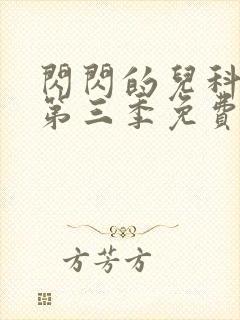 閃閃的兒科
第三季免費
方芳方